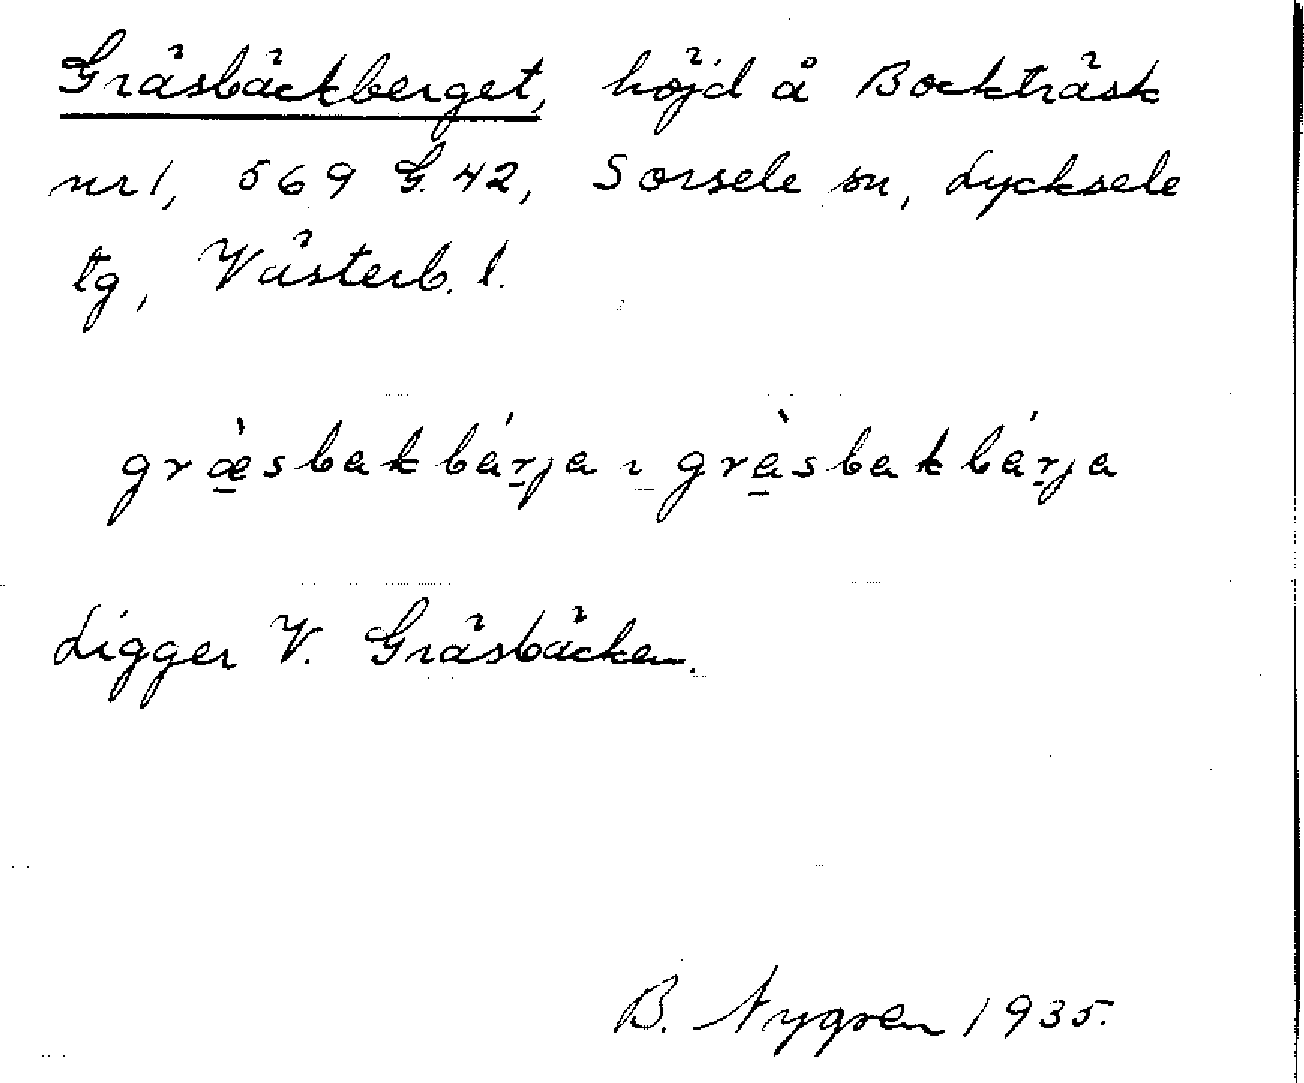 Gräsbäckberget, höjd å Bockträsk
nr 1, 569 G. 42, Sorsele sn, Lycksele
tg, Västerb. l.
græ̠̀sbakbár̠ja ı grà̠sbakbár̠ja
Ligger V. Gräsbäcken.
B. Nygren 1935.